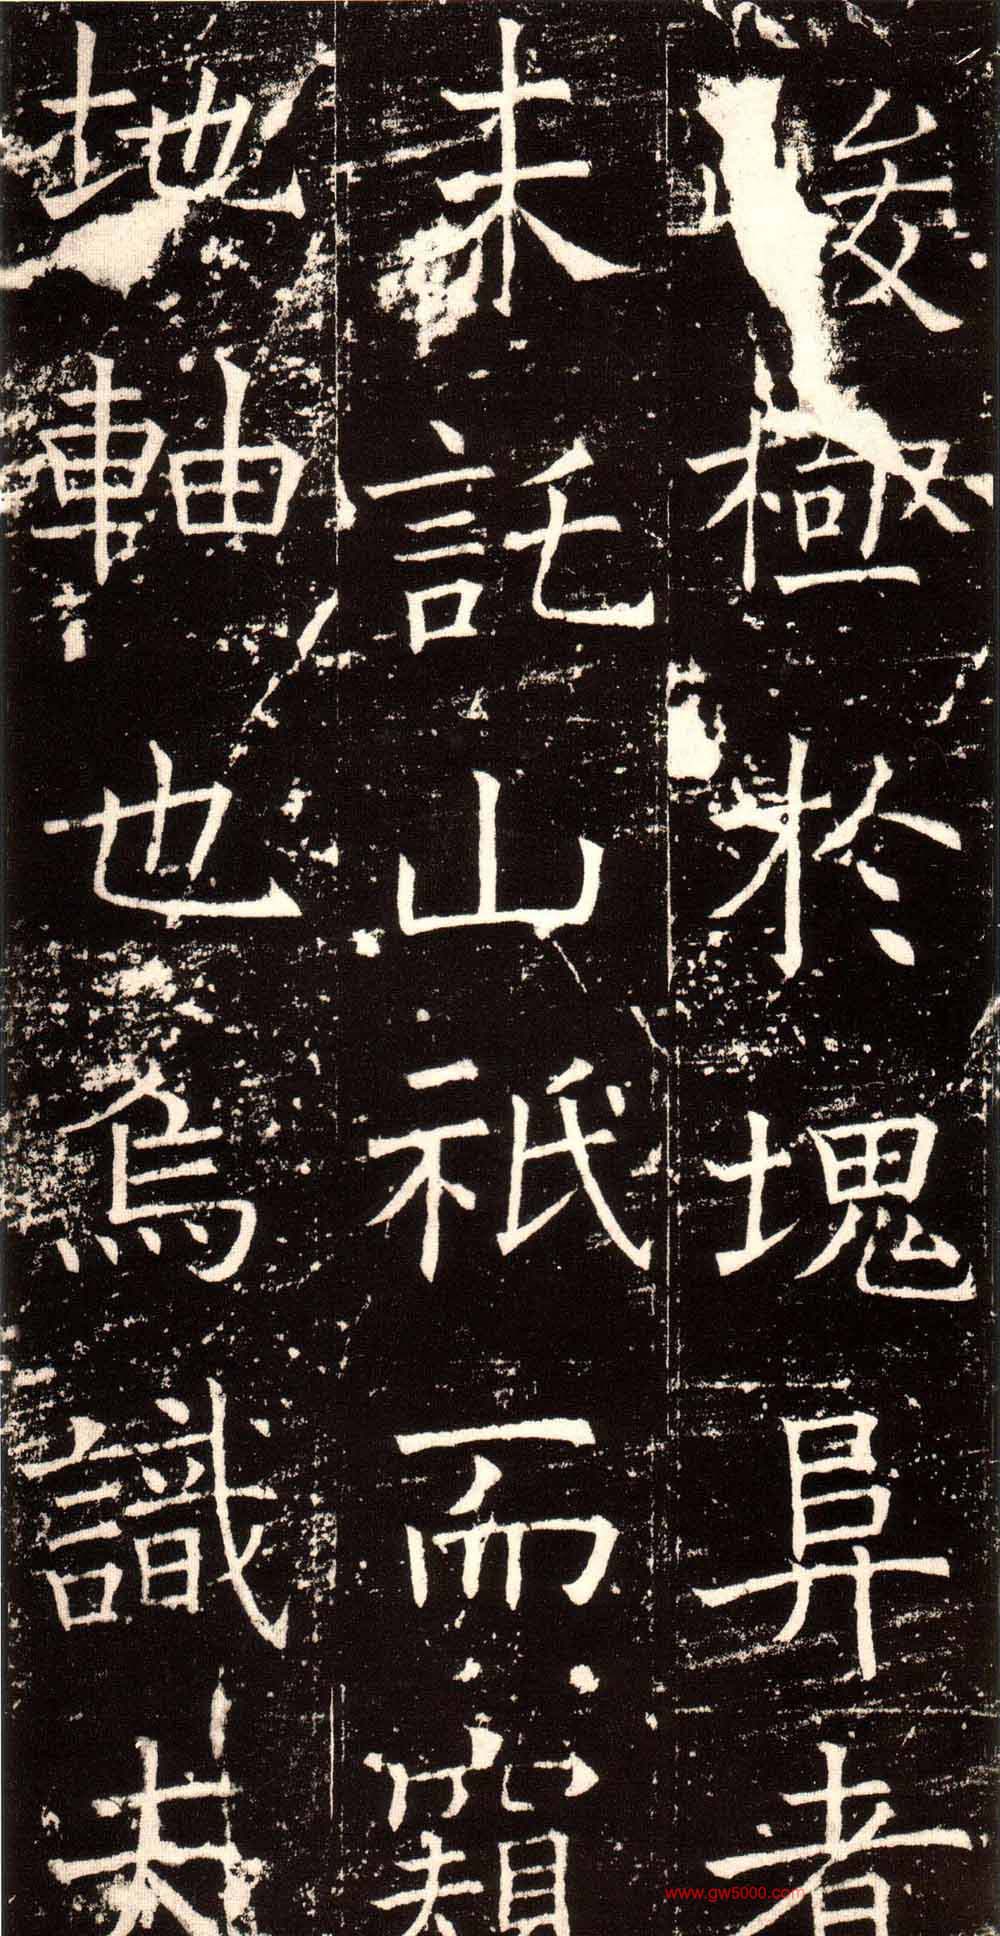 峻極於塊阜者
未託山祇而窺
地軸也焉識夫
www.gw5000.com